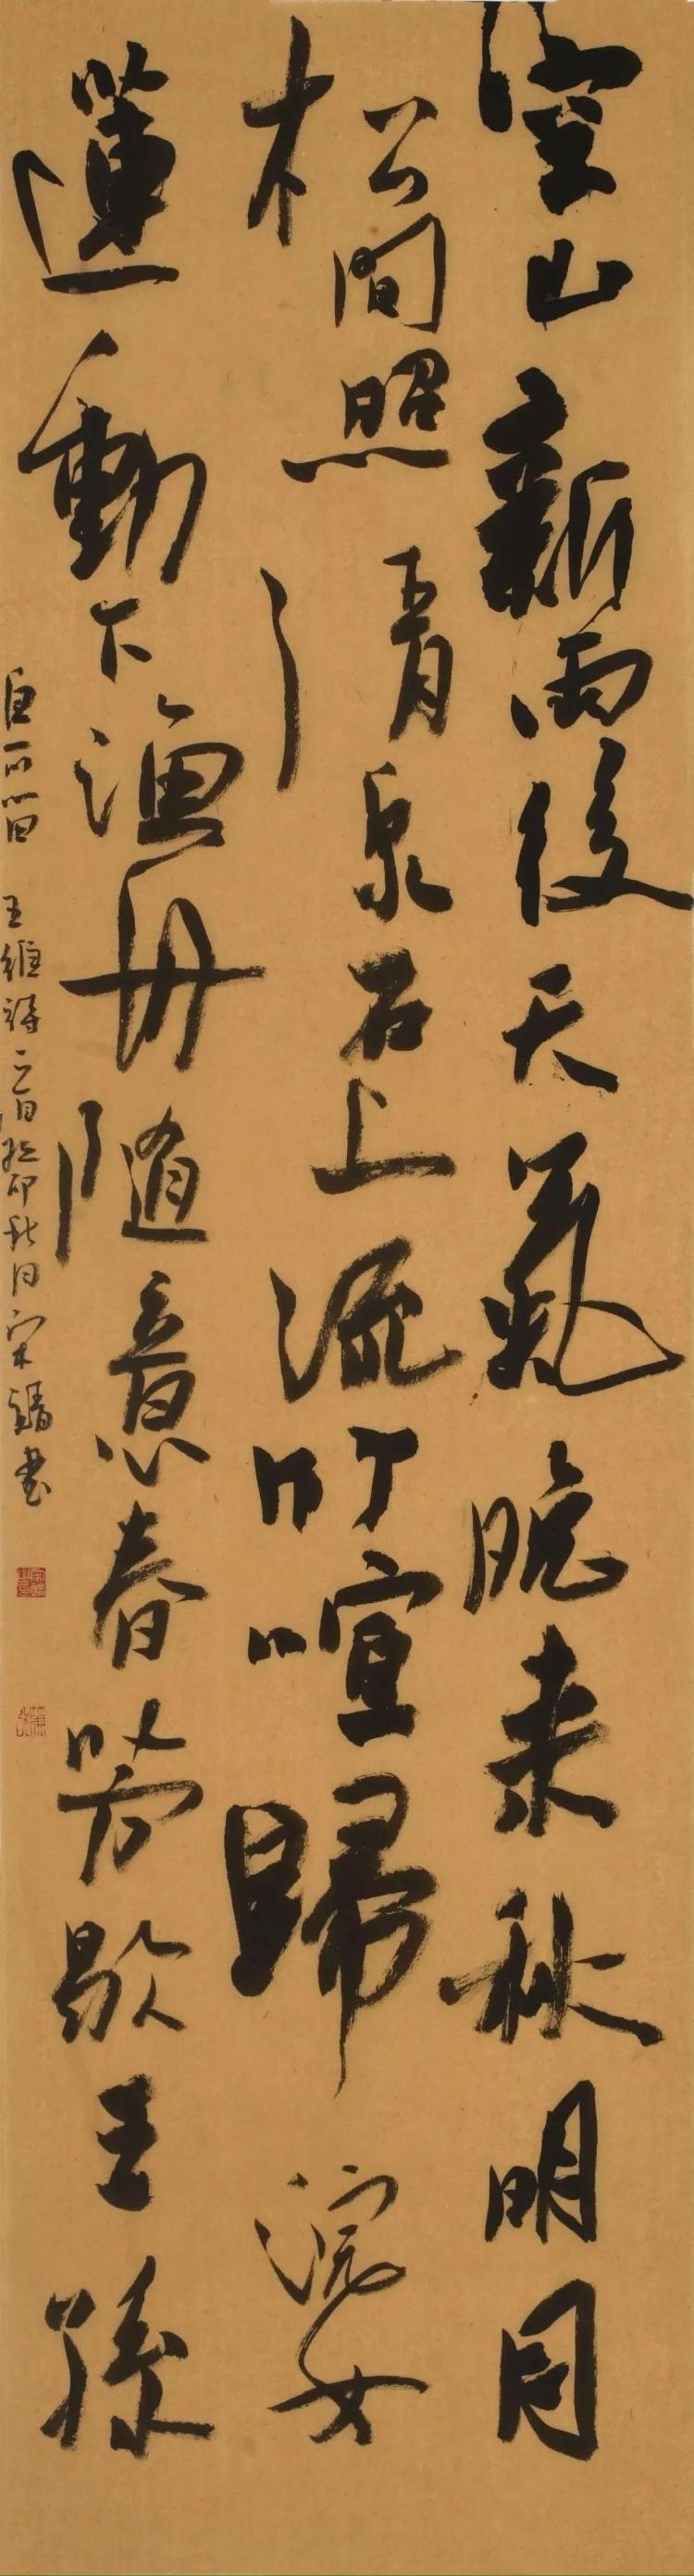 空山新雨後天氣晚来秋明月
松間照清泉石上流竹喧歸浣女
蓮動下漁舟隨意春芳歇王孫
自可留 王維詩一首癸卯秋月宋書